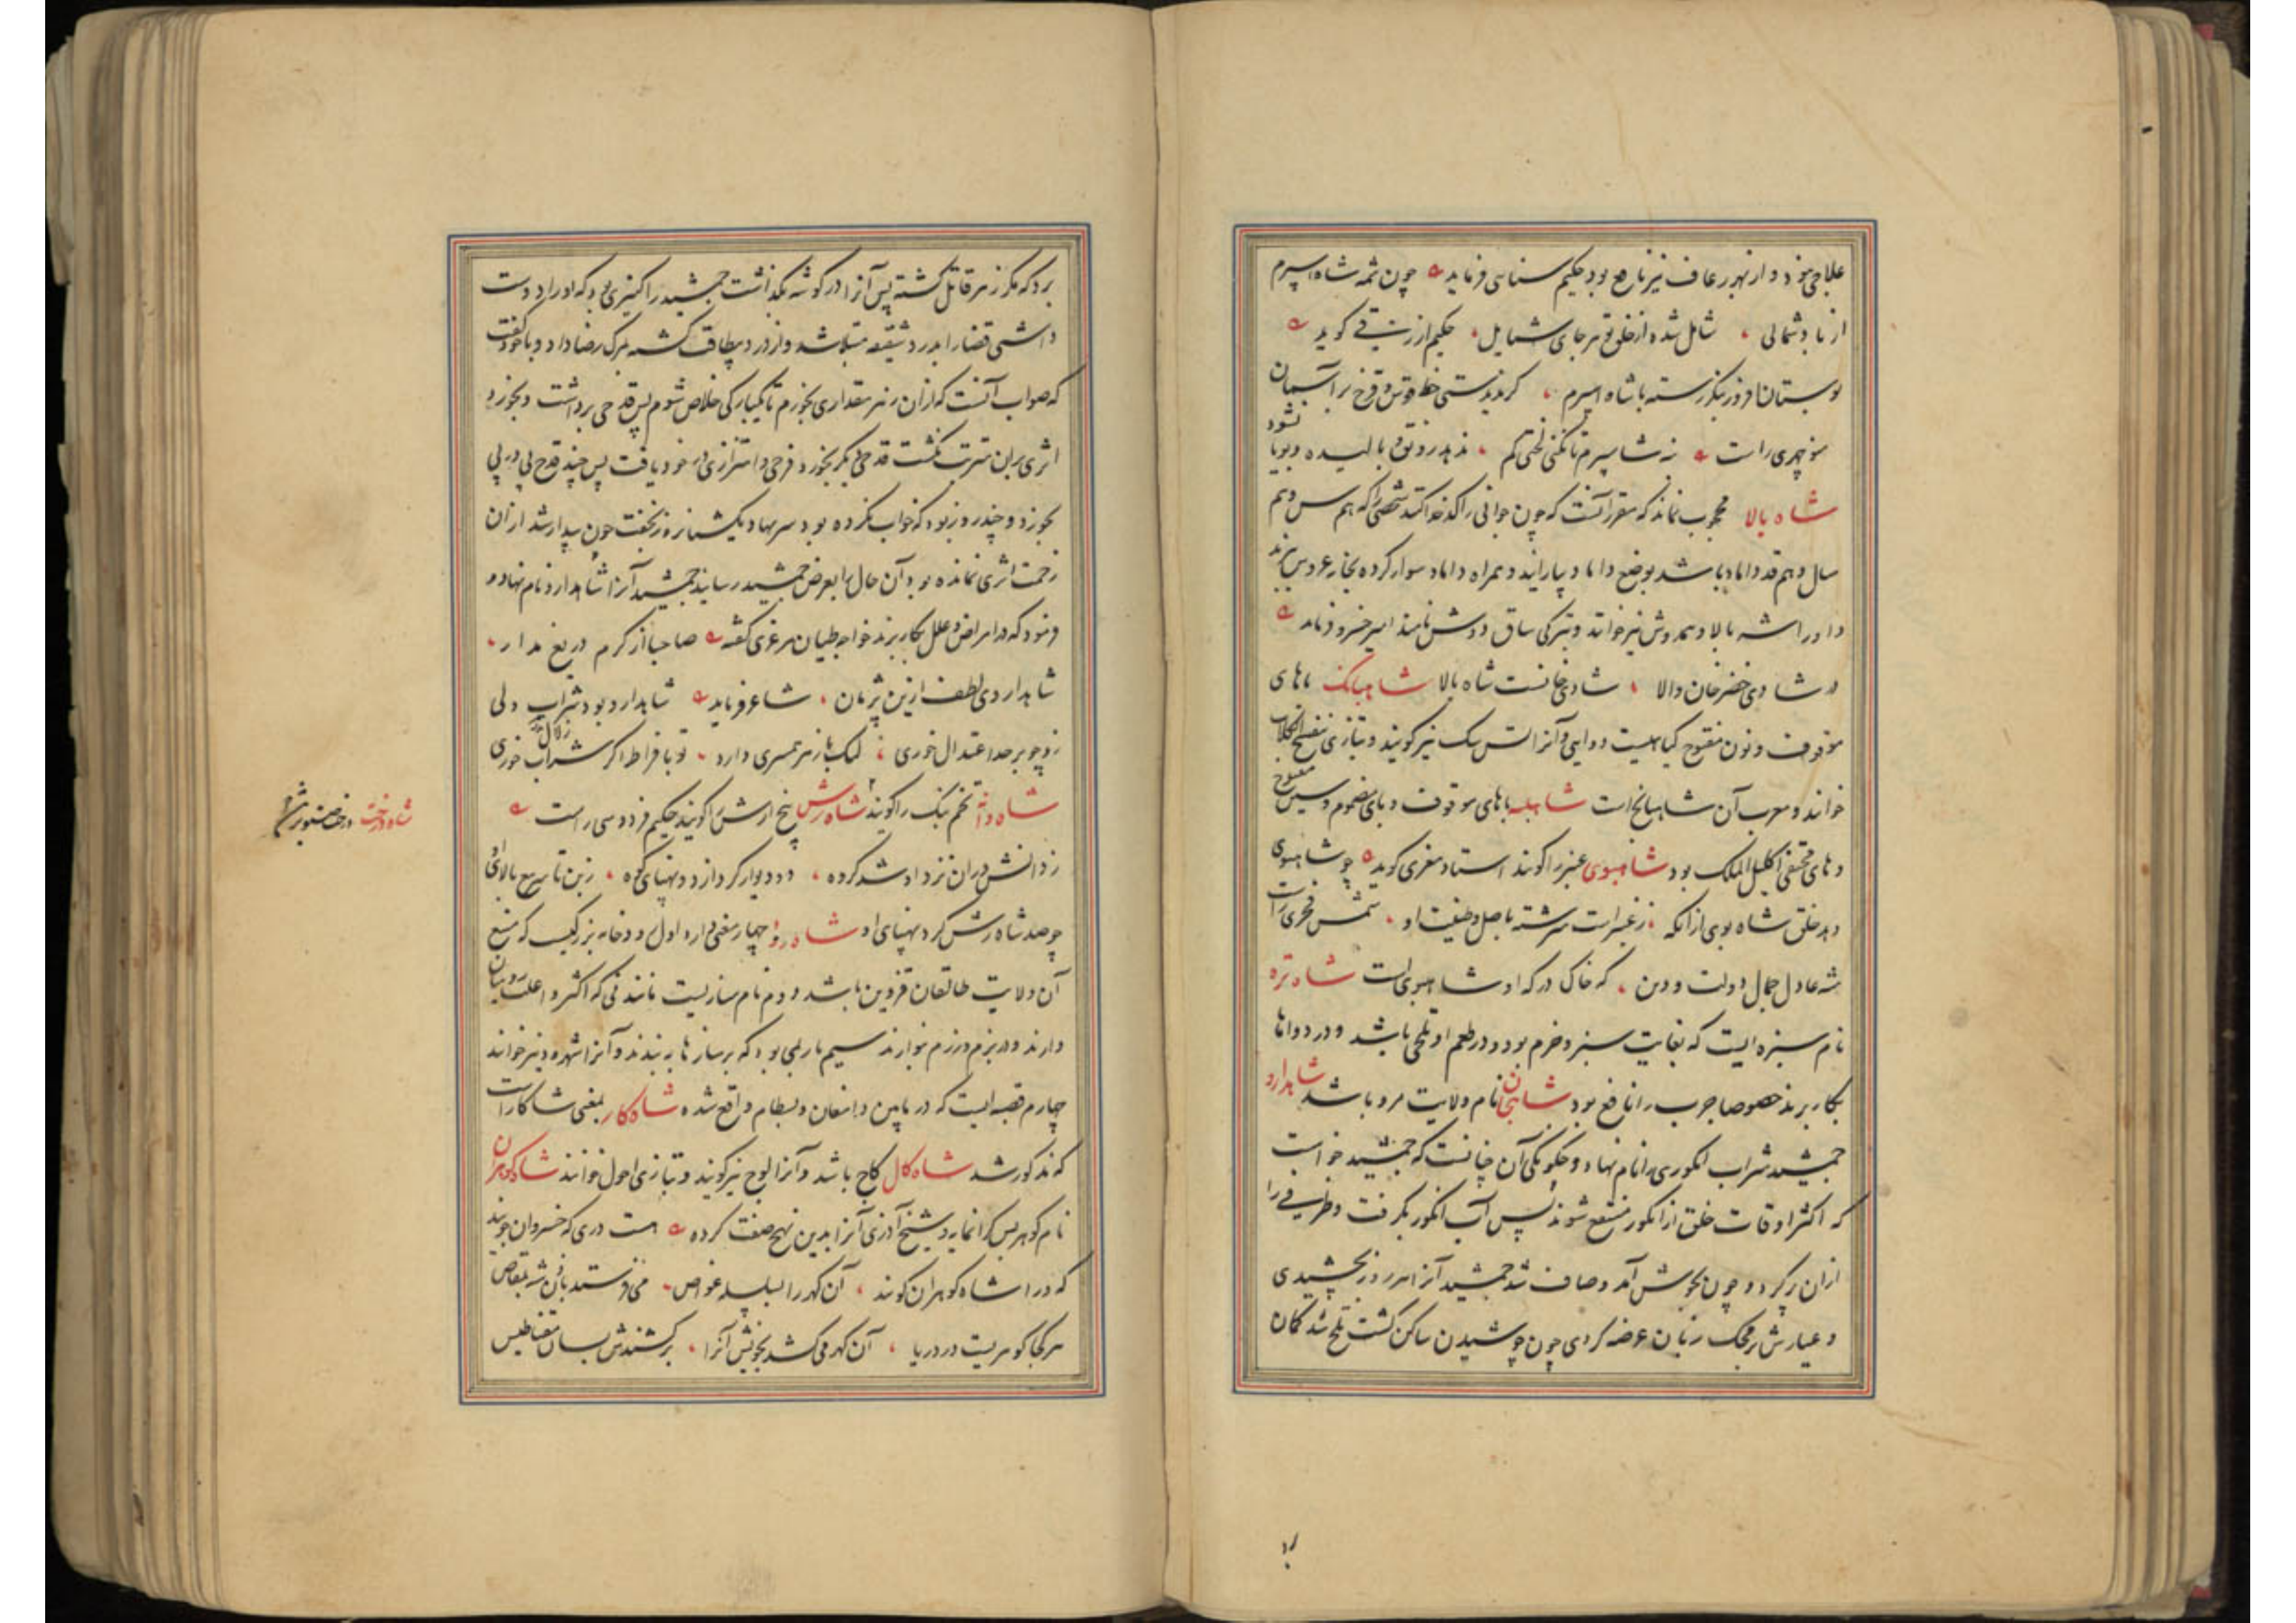 علاجی بود و از بهر رعاف نیز نافع بود حکیم سنایی فرماید چون شمه شاه اسپرم
از باد شمالی شامل شده از خلق تو هر جای شمایل حکیم ازرقی گوید
بوستان افروز بنگر رسته با شاه اسپرم گر ندیدستی خط قوس قزح بر آسمان
منوچهری راست نه شاسپرم تا نکنی لختی کم ندهد رونق و بالیده و بویا نشود
شاه بالا محجوب نماند که مقرر آنست که چون جوانی را کدخدا کنند شخصی را که هم سن و هم
سال و هم قد داماد باشد بوضع داماد بیارایند و همراه داماد سوار کرده بخانه عروس برند
و او را شه بالا و همدوش نیز خوانند و بترکی ساق دوش نامند امیر خسرو فرماید
در شادی خضر خان والا شادی خانست شاه بالا شاهبانک با های
موقوف و نون مفتوح گیاهیست دوایی و آنرا تس سک نیز گویند و بتازی
خوانند و معرب آن شاهبانج است شاهبله با های موقوف و بای مضموم و سین مفتوح
و های مختفی اکلیل الملک بود شاهبوی عنبر را گویند استاد مغزی گوید چو شاهبوی
دهد خلق شاه بوی از آنکه ز عنبر است سرشته باصل طینت او شمس فخری راست
شه عادل جمال دولت و دین که خاک درگه او شاهبوی است شاه تره
نام سبزه ایست که بغایت سبز و خرم بود و در طعم او تلخی باشد و در دواها
بکار برند خصوصا جرب را نافع بود شاهجان نام ولایت مرو باشد شاهدارو
جمشید شراب انگوری را نام نهاد و چگونگی آن چنانست که جمشید خواست
که اکثر اوقات خلق از انگور منتفع شوند پس آب انگور بگرفت و ظرفی را
از آن پر کرد و چون بجوش آمد و صاف شد جمشید آنرا هر روز بچشیدی
و عیارش بر محک زبان عرضه کردی چون از جوشیدن ساکن گشت تلخ شد گمان
برد که مگر زهر قاتل گشته پس آنرا در گوشه بگذاشت جمشید را کنیزی بود که او را دوست
داشتی قضا را بدرد شقیقه مبتلا شد و از درد بیطاقت گشته بمرگ رضا داد و با خود گفت
که صواب آنست که از آن زهر مقداری بخورم تا یکبارگی خلاص شوم پس قدحی برداشت و بخورد
اثری بر آن مترتب نگشت قدحی دیگر بخورد فرحی و اهتزازی در خود یافت پس چند قدح پی در پی
بخورد و چند روز بود که خواب نکرده بود سر نهاد یکشبانه روز بخفت چون بیدار شد از آن
زحمت اثری نمانده بود آن حال را بعرض جمشید رسانید جمشید آنرا شاهدارو نام نهاد و
فرمود که در امراض و علل بکار برند خواجه طیان مرغزی گفته صاحبا از کرم دریغ مدار
شاهداروی لطف ازین پژمان شاعر فرماید شاهدارو بود شراب ولی
زو چو بر حد اعتدال خوری لیک با زهر همسری دارد تو بافراط اگر شراب خوری
زلال
شاه دانه تخم بنک را گویند شاه رش پنج ارش را گویند حکیم فردوسی راست
ز دانش دران نزد او شد گروه دو دیوار گرد از دو پهنای کوه زبن تا سر تیغ بالای
چو صد شاه رش گرد پهنای او شاه رود چهار معنی دارد اول رودخانه بزرگیست که منبع
آن ولایت طالقان قزوین باشد دوم نام سازیست مانند نی که اکثر و اغلب رومیان
دارند و در بزم و رزم نوازند سیم تار بمی بود که بر سازها ببندند و آنرا شهرود نیز خوانند
چهارم قصبه ایست که در مابین دامغان و بسطام واقع شده شاه کار بمعنی شاکار است
که مذکور شد شاه کال کاج باشد و آنرا لوچ نیز گویند و بتازی احول خوانند شاه گوهران
نام گوهریست شیخ آذری آنرا بدین نهج صفت کرده هست دری که خسروان جویند
که ورا شاه گوهران گویند آن گهر را بسلسله غواص می فرستد
هر کجا گوهریست در دریا آن گهر می کشد بخویش آنرا بر کشندش بسان مقناطیس
شاه درخت درخت صنوبر را